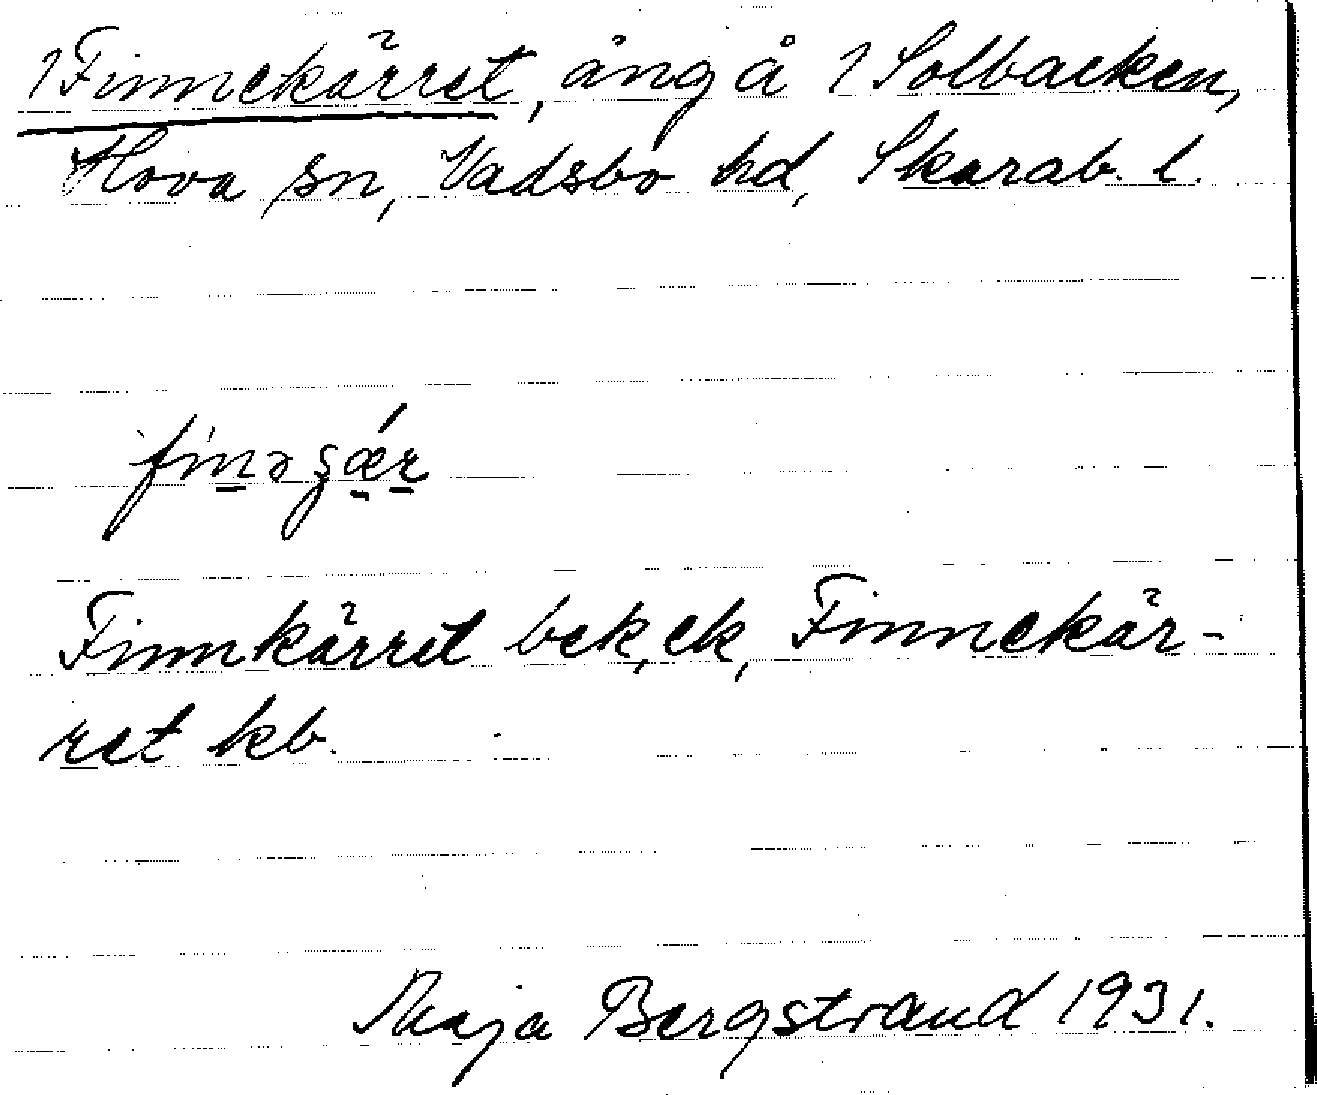 1 Finnekärret, äng å 1 Solbacken,
Hova sn, Vadsbo hd, Skarab. l.
Finnkärret bek, ek, Finnekär-
ret kb.
Maja Bergstrand 1931.